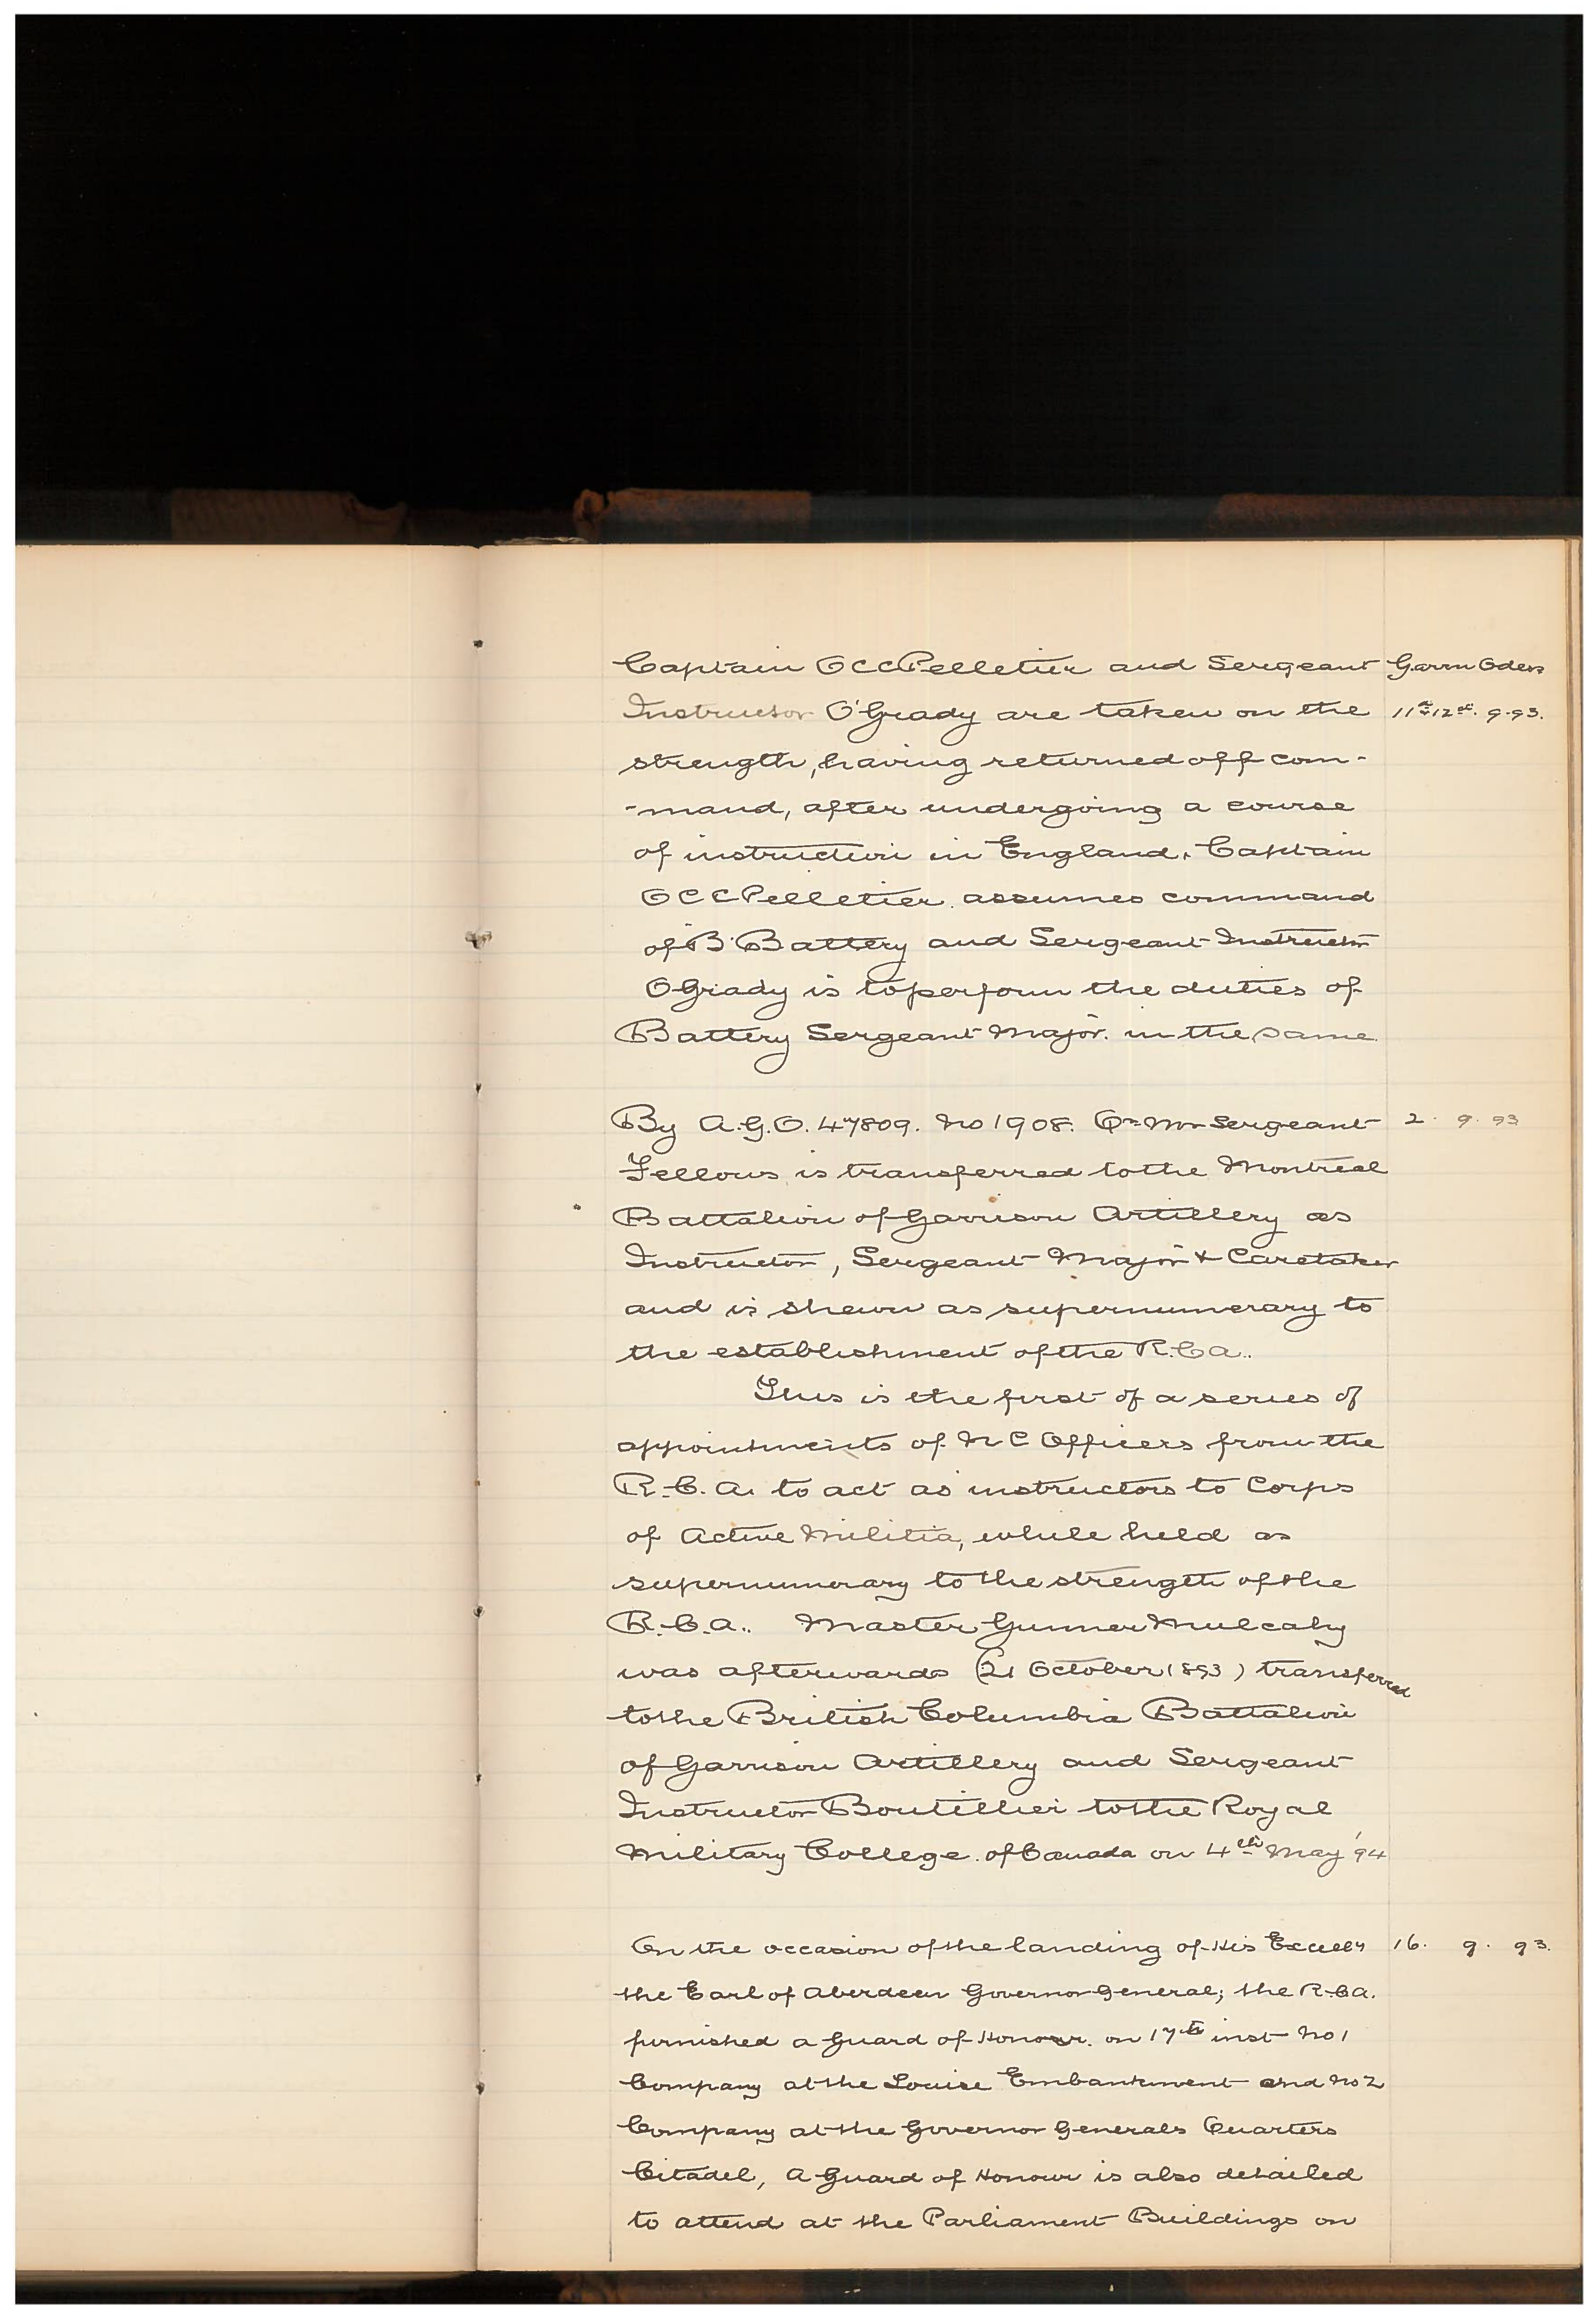 Captain O C C Pelletier and Sergeant Garrn Oders
Instructor O'Grady are taken on the 11th & 12th. 9.93.
strength, having returned off com-
-mand, after undergoing a course
of instruction in England. Captain
O C C Pelletier assumes command
of "B" Battery and Sergeant Instructor
O'Grady is to perform the duties of
Battery Sergeant Major. in the same
By A.G.O. 47809. No 1908. Qr Mr Sergeant 2. 9. 93
Fellows is transferred to the Montreal
Battalion of Garrison Artillery as
Instructor, Sergeant Major & Caretaker
and is shewn as supernumerary to
the establishment of the R.C.A..
This is the first of a series of
appointments of N C Officers from the
R.C.A. to act as instructors to Corps
of Active Militia, while held as
supernumerary to the strength of the
R.C.A.. Master Gunner Mulcahy
was afterwards (21 October 1893) transferred
to the British Columbia Battalion
of Garrison Artillery and Sergeant
Instructor Boutillier to the Royal
Military College of Canada on 4th May '94
On the occasion of the landing of His Excelly 16. 9. 93.
the Earl of Aberdeen Governor General; the R.C.A.
furnished a Guard of Honour. on 17th inst No 1
Company at the Louise Embankment and No 2
Company at the Governor Generals Quarters
Citadel, A Guard of Honour is also detailed
to attend at the Parliament Buildings on